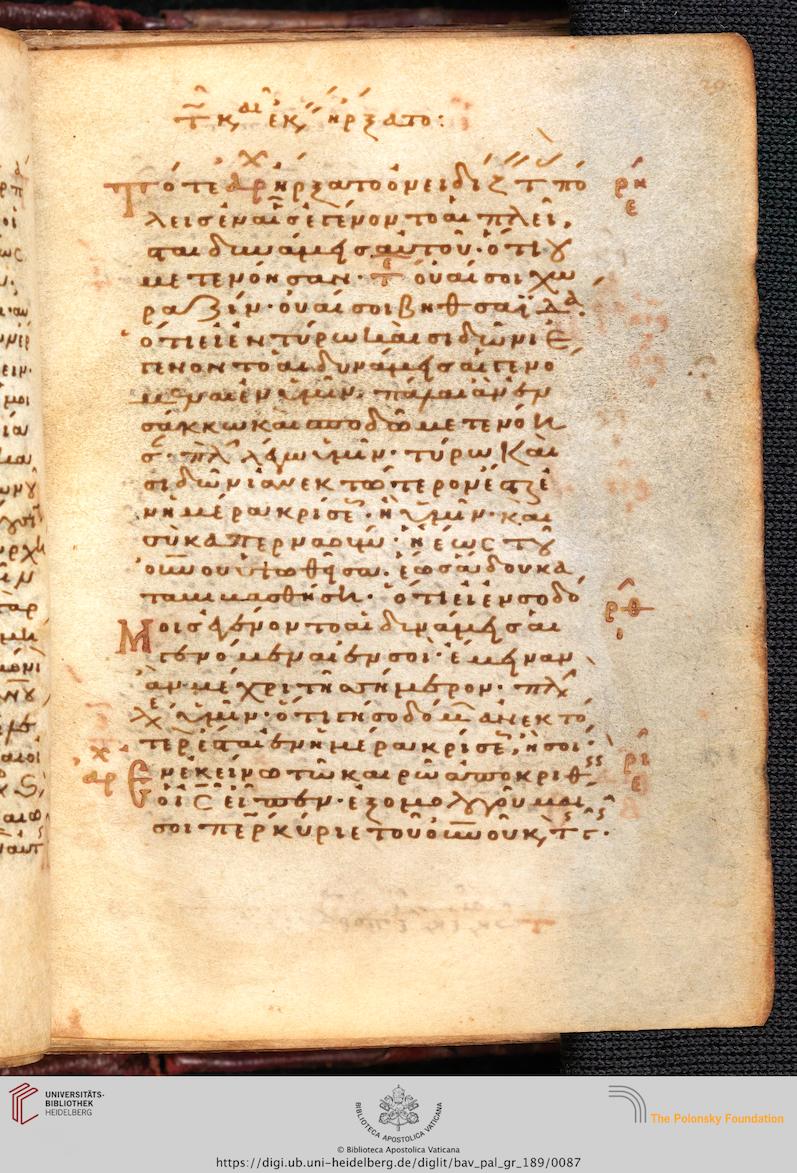 ἤρξατο:
Τότε ἤρξατο ὀνειδίζ τ πό
λεις ἐν αἷς ἐγένοντο αἱ πλεῖ
ται δυνάμεις αὐτοῦ· ὅτι οὐ
μετενόησαν· οὐαί σοι χω
ραζίν· οὐαί σοι βηθσαϊδά
ὅτι εἰ ἐν τύρω καὶ σιδῶνι ἐ
γένοντο αἱ δυνάμεις αἱ γενό
μεναι ἐν ὑμῖν· πάλαι ἂν ἐν
σάκκω καὶ σποδῶ μετενόη
σ· πλ λέγω ὑμῖν· τύρω καὶ
σιδῶνι ἀνεκτότερον ἔσται ἐ
ν ἡμέρα κρίσε· ἢ ὑμῖν· καὶ
σὺ καπερναούμ· ἡ ἕως τοῦ
οὐνου ὑψωθεῖσα· ἕως ἅδου κα
ταβιβασθήση· ὅτι εἰ ἐν σοδό
μοις ἐγένοντο αἱ δυνάμεις αἱ
γενόμεναι ἐν σοι· ἔμειναν
ἂν μέχρι τῆς σήμερον· πλ
λ ὑμῖν· ὅτι γῆ σοδόμ ἀνεκτό
τερ ἔσται ἐν ἡμέρα κρίσε, ἢ σοί·
Ἐν ἐκείνω τῶ καιρῶ ἀποκριθ
ὁ ις εἶπεν· ἐξομολογοῦμαι
σοι περ κύριε τοῦ οὐνοῦ κ, τ γ·
UNIVERSITÄTS-
BIBLIOTHEK
HEIDELBERG
BIBLIOTECA APOSTOLICA VATICANA
The Polonsky Foundation
© Biblioteca Apostolica Vaticana
https://digi.ub.uni-heidelberg.de/diglit/bav_pal_gr_189/0087